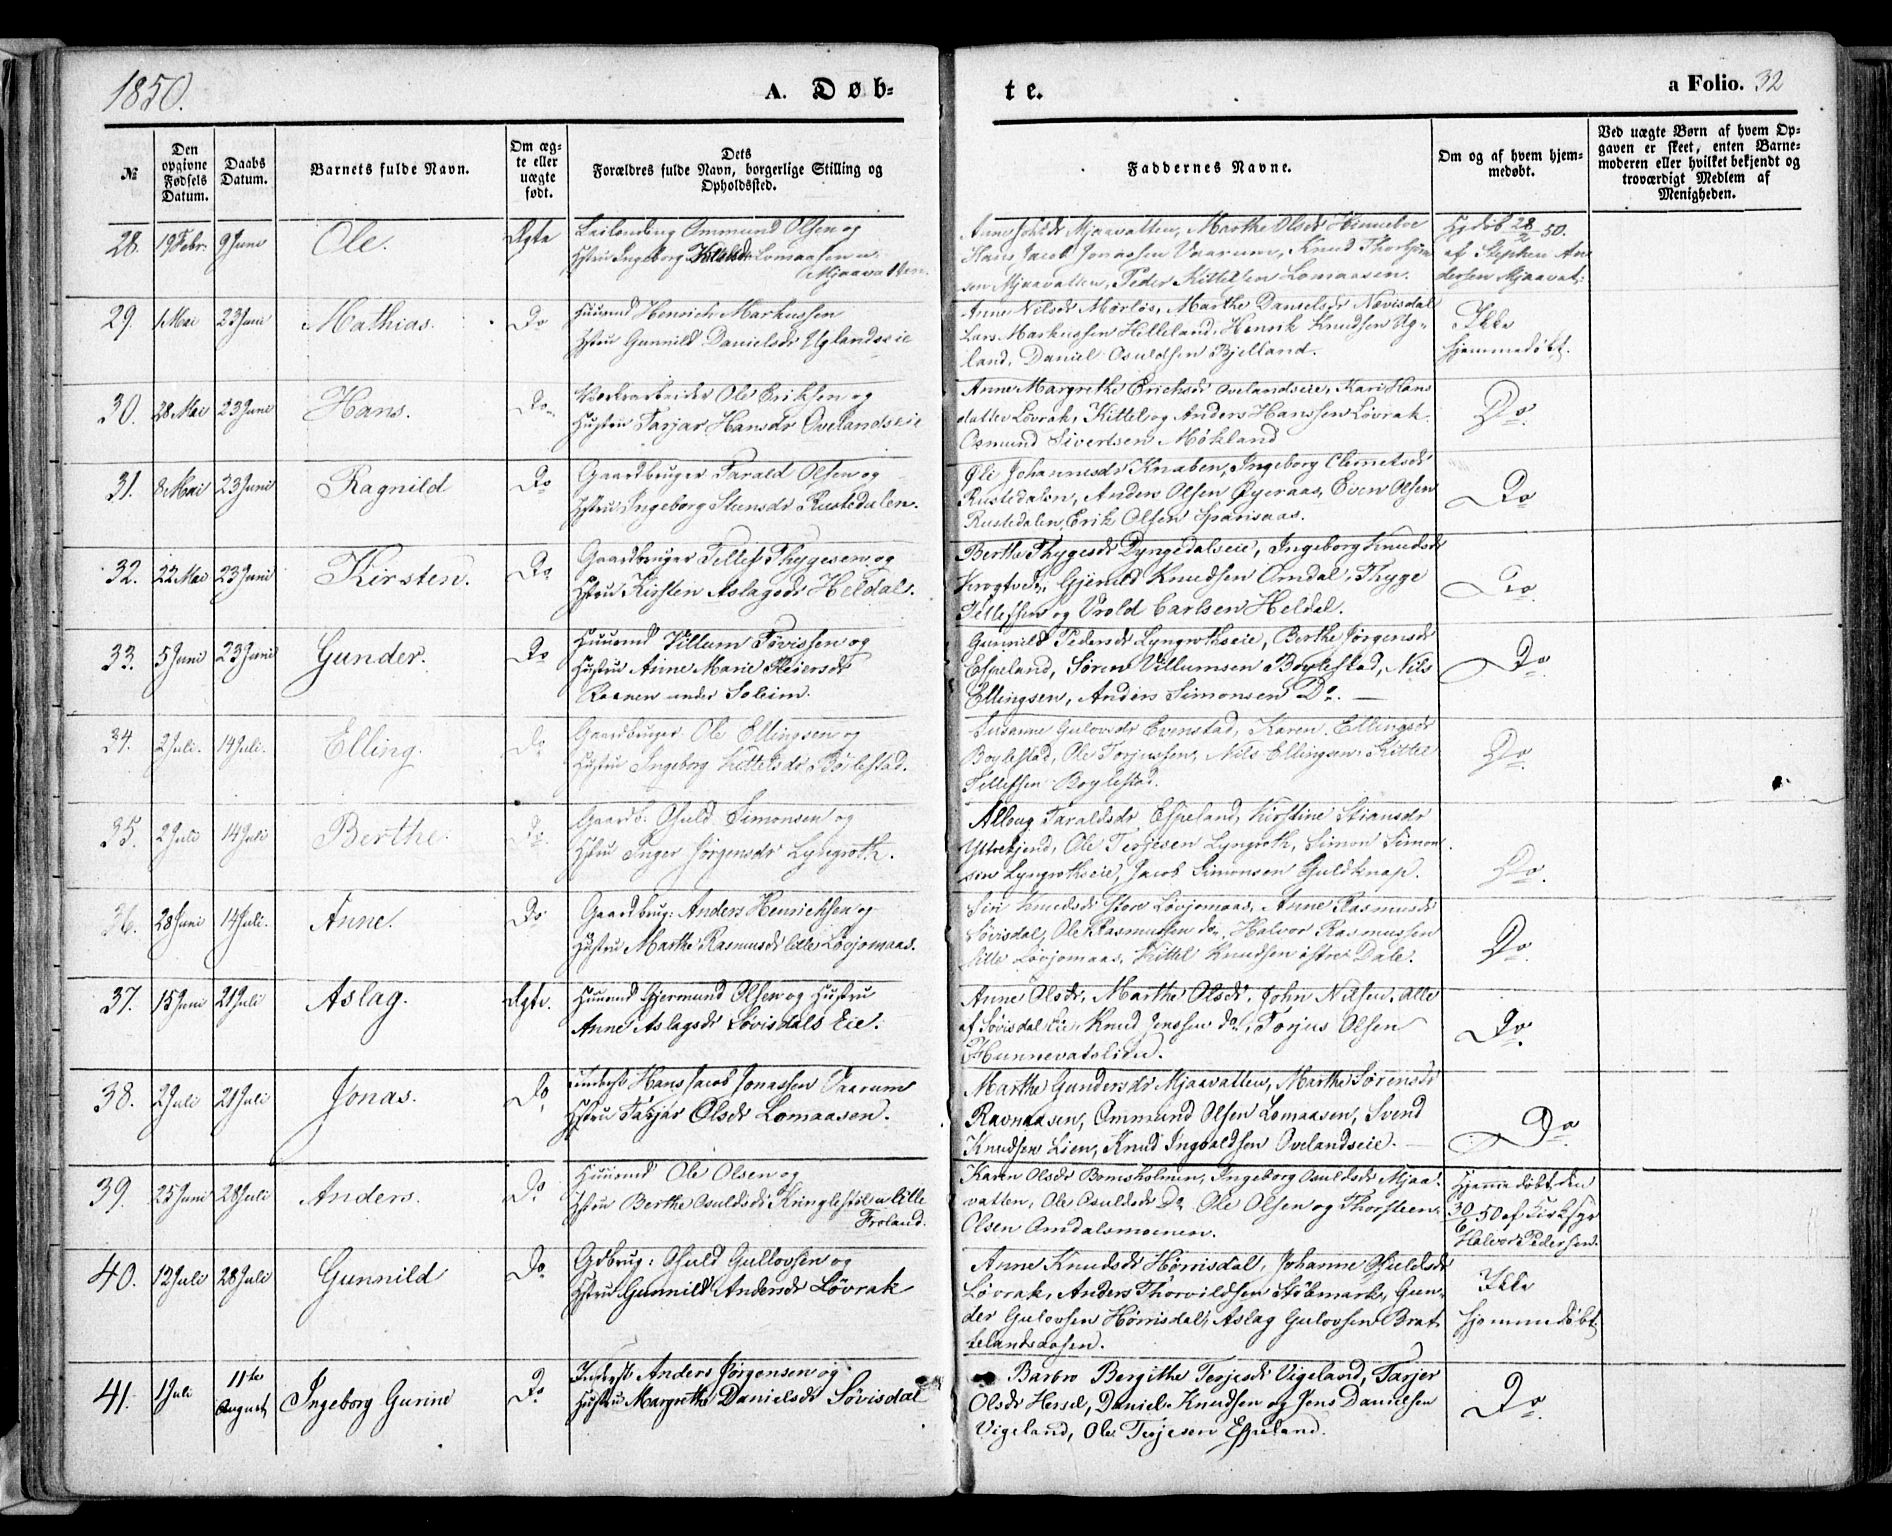 1850.
A. Døb-
te.
a Folio. 32
№
Den opgivne Fødsels Datum.
Daabs Datum.
Barnets fulde Navn.
Om ægte eller uægte født.
Dets Forældres fulde Navn, borgerlige Stilling og Opholdssted.
Faddernes Navne.
Om og af hvem hjemmedøbt.
Ved uægte Børn af hvem Opgaven er skeet, enten Barnemoderen eller hvilket bekjendt og troværdigt Medlem af Menigheden.
28. 19 Febr. 9 Juni Ole. Ægte
Ommund Olsen og
Hstru Ingeborg Lomaasen u.
Mjaavatten.
Mjaavatten, Marthe Olsdr Hinneboe
Hans Jacob Jonassen Vaarum, Knud
sen Mjaavatten, Peder Kittelsen Lomaasen.
Hjdøb. 28/2 50.
af Stephen An
dersen Mjaavat:
29. 1 Mai 23 Juni Mathias. Do
Huusmd Henrich Markussen
Hstru Gunnild Danielsdr Uglandseie
Anne Nilsdr Mørløs, Marthe Danielsdr Nævisdal
Lars Markussen Hilleland, Henrik Knudsen Ug-
land, Daniel Osuldsen Bjelland.
Ikke
hjemmedøbt.
30. 28 Mai 23 Juni Hans. Do
Ole Eriksen og
Hustru Tarjer Hansdr Ovelandseie
Anne Margrethe Erichsdr Ovelandseie, Kari Hans
datter Løvrak, Kittel og Anders Hanssen Løvrak
Osmund Sivertsen Mökland
Do.
31. 8 Mai 23 Juni Ragnild Do
Gaardbruger Tarald Olsen og
Hstru Ingeborg Stensdr Rustedalen.
Øli Johannesdr Knaben, Ingeborg Clemetsdr
Rustedalen, Anders Olsen Øygeraas, Even Olsen
Rustedalen, Erik Olsen Sparisaas.
Do
32. 22 Mai 23 Juni Kirsten. Do
Gaardbruger Tellef Thygesen og
Hstru Kirsten Aslagsdr Heldal.
Berthe Thygesdr Dyngedalseie, Ingeborg Knudsdr
Krogtvedt, Gjeruld Knudsen Omdal, Thyge
Tellefsen og Vrold Carlsen Heldal.
Do
33. 5 Juni 23 Juni Gunder. Do
Huusmd Villum Tøvissen og
Hustru Anne Marie Pedersdr
Raanen under Soleim.
Gunnild Pedersdr Lyngrothseie, Berthe Jørgensdr
Espeland, Søren Villumsen Boylestad, Nils
Ellingsen, Anders Simonsen Do. —
Do
34. 2 Juli. 14 Juli. Elling. Do
Gaardbruger Ole Ellingsen og
Hustru Ingeborg Kittelsdr Bøilestad.
Susanne Gulovsdr Evenstad, Karen Ellingsdr
Boylestad, Ole Torjussen, Nils Ellingsen, Kittel
Tellefsen Boylestad.
Do
35. 2 Juli 14 Juli Berthe. Do.
Gaardb. Osuld Simonsen og
Hstru Inger Jørgensdr Lyngroth.
Alloug Taraldsdr Espeland, Kirstine Stiansdr
Yttrekjend, Ole Terjesen Lyngroth, Simon Simon
sen Lyngrothseie, Jacob Simonsen Guldknap.
Do.
36. 28 Juni 14 Juli. Anne. Do
Gaardbrug: Anders Henrichsen og
Hustru Marthe Rasmusdr lille Løvjomaas.
Siri Knudsdr Store Løvjomaas, Anne Rasmusdr
Søvisdal, Ole Rasmussen do, Halvor Rasmussen
lille Løvjomaas, Kittel Knudsen østre Dale.
Do.
37. 15 Juni 21 Juli Aslag. Ægte.
Huusmd Gjermund Olsen og Hustru
Anne Aslagsdr Søvisdals Eie.
Anne Olsdr, Marthe Olsdr, John Nilsen, alle
af Søvisdal Eie, Knud Jenssen do, Torjus Olsen
Hunnevatslien.
Do.
38. 2 Juli 21 Juli Jonas. Do
Hans Jacob Jonassen Vaarum
Hstru Tarjer Olsdr Lomaasen.
Marthe Gundersdr Mjaavatten, Marthe Sørensdr
Ravnaasen, Ommund Olsen Lomaasen, Svend
Knudsen Lien, Knud Ingvaldsen Ovelandseie.
Do
39. 25 Juni 28 Juli Anders. Do
Huusmd Ole Olsen og
Hstru Berthe Osuldsdr Kringlestöl u. lille
Froland.
Karen Olsdr Bomsholmen, Ingeborg Osuldsdr Mjaa-
vatten, Ole Osuldsdr Do Ole Olsen og Thorsteen
Olsen Omdalsmoinen.
Hjemmedøbt den
30/6 50 af Kirksgr
Halvor Pedersen.
40. 12 Juli 28 Juli Gunnild Do
Gdbrug: Osuld Gullovsen og
Hstru Gunnild Andersdr Løvrak
Anne Knudsdr Hørrisdal, Johanne Osuldsdr
Løvrak, Anders Thorvildsen Støbmark, Gun-
der Gulovsen Hørrisdal, Aslag Gulovsen Brat
telandsaasen.
Ikke
hjemmedøbt
41. 1 Juli 11te August Ingeborg Gurine Do
Inderst Anders Jørgensen og
Hustru Margrethe Danielsdr Søvisdal
Barbro Bergithe Terjesdr Vigeland, Tarjer
Olsdr Hersel, Daniel Knudsen og Jens Danielsen
Vigeland, Ole Terjesen Espeland.
Do.